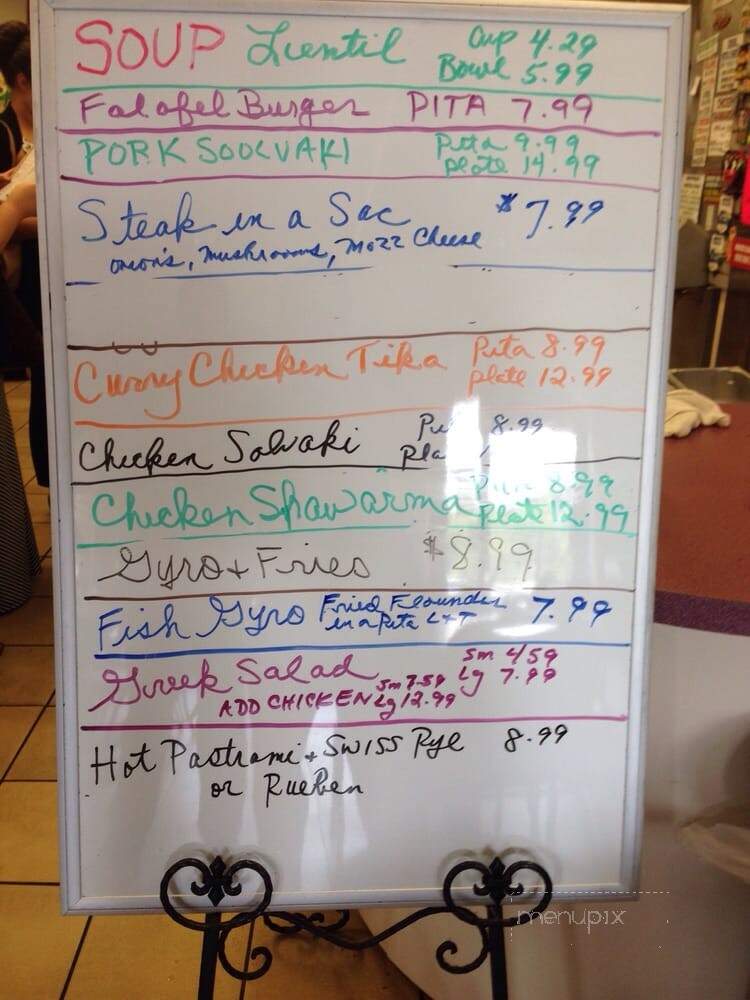 SOUP Lientil Cup 4.29
Bowl 5.99
Falafel Burger PITA 7.99
PORK SOOLVAKI Pita 9.99
plate 14.99
Steak in a Sac $7.99
onion's, mushrooms, mozz Cheese
Curry Chicken Tika Pita 8.99
plate 12.99
Chicken Solvaki 8.99
Chicken Shawarma Pita 8.99
plate 12.99
Gyro + Fries $8.99
Fish Gyro Fried Flounder 7.99
in a Pita L+T
Greek Salad Sm 4.59
Lg 7.99
ADD CHICKEN Sm 7.59
Lg 12.99
Hot Pastrami + SWISS Rye 8.99
or Rueben
menupix